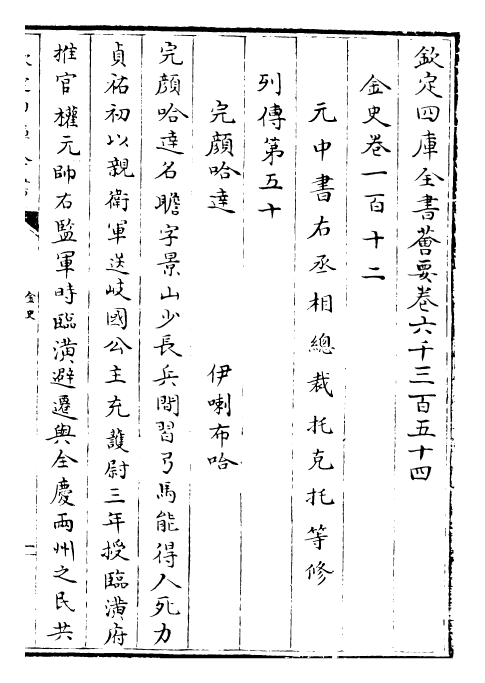 欽定四庫全書薈要卷六千三百五十四
金史卷一百十二
元中書右丞相總裁托克托等修
列傳第五十
完顔哈達 伊喇布哈
完顔哈達名瞻字景山少長兵間習弓馬能得人死力
貞祐初以親衛軍送岐國公主充護尉三年授臨潢府
推官權元帥右監軍時臨潢避遷與全慶兩州之民共
金史